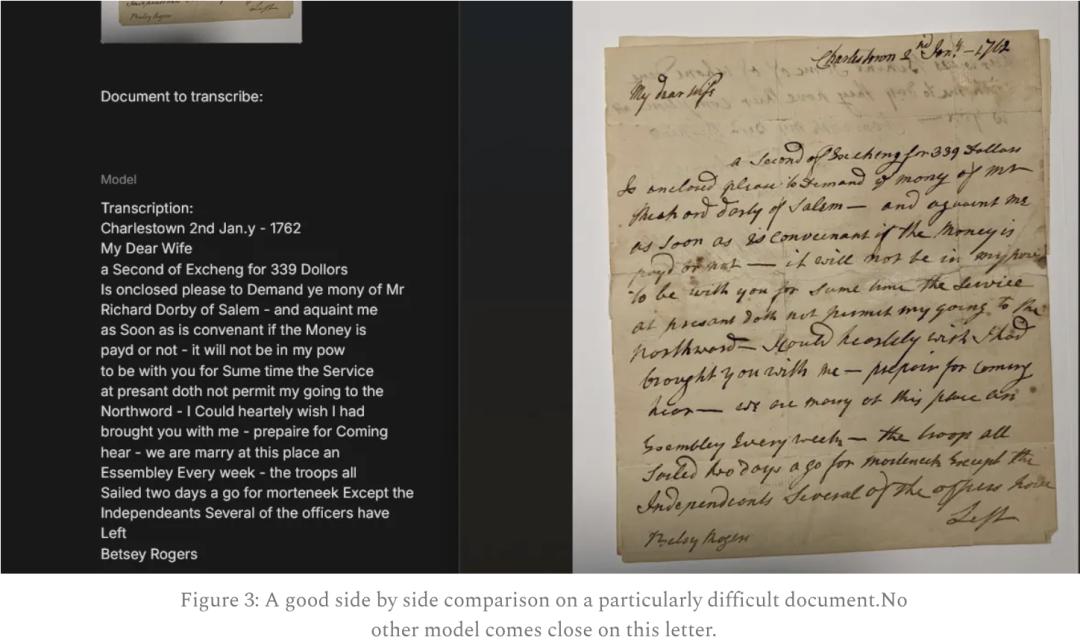 Document to transcribe:
Model
Transcription:
Charlestown 2nd Jan.y - 1762
My Dear Wife
a Second of Excheng for 339 Dollors
Is onclosed please to Demand ye mony of Mr
Richard Dorby of Salem - and aquaint me
as Soon as is convenant if the Money is
payd or not - it will not be in my pow
to be with you for Sume time the Service
at presant doth not permit my going to the
Northword - I Could heartely wish I had
brought you with me - prepaire for Coming
hear - we are marry at this place an
Essembley Every week - the troops all
Sailed two days a go for morteneek Except the
Independeants Several of the officers have
Left
Betsey Rogers
Charlestown 2nd Jan.y - 1762
My dear wife
a Second of Excheng for 339 Dollars
Is enclosed please to Demand ye mony of Mr
darby of Salem — and aquaint me
as Soon as is convenant if the Money is
payd or not — it will not be in my pow
to be with you for Sume time the Service
at presant doth not permit my going to the
Northward — I Could heartely wish I had
brought you with me — for coming
hear — we are marry at this place an
Essembley Every week — the troop all
Sailed two days a go for morteneek Except the
Independeants Several of the officers have
Left
Betsy Rogers
Figure 3: A good side by side comparison on a particularly difficult document.No
other model comes close on this letter.